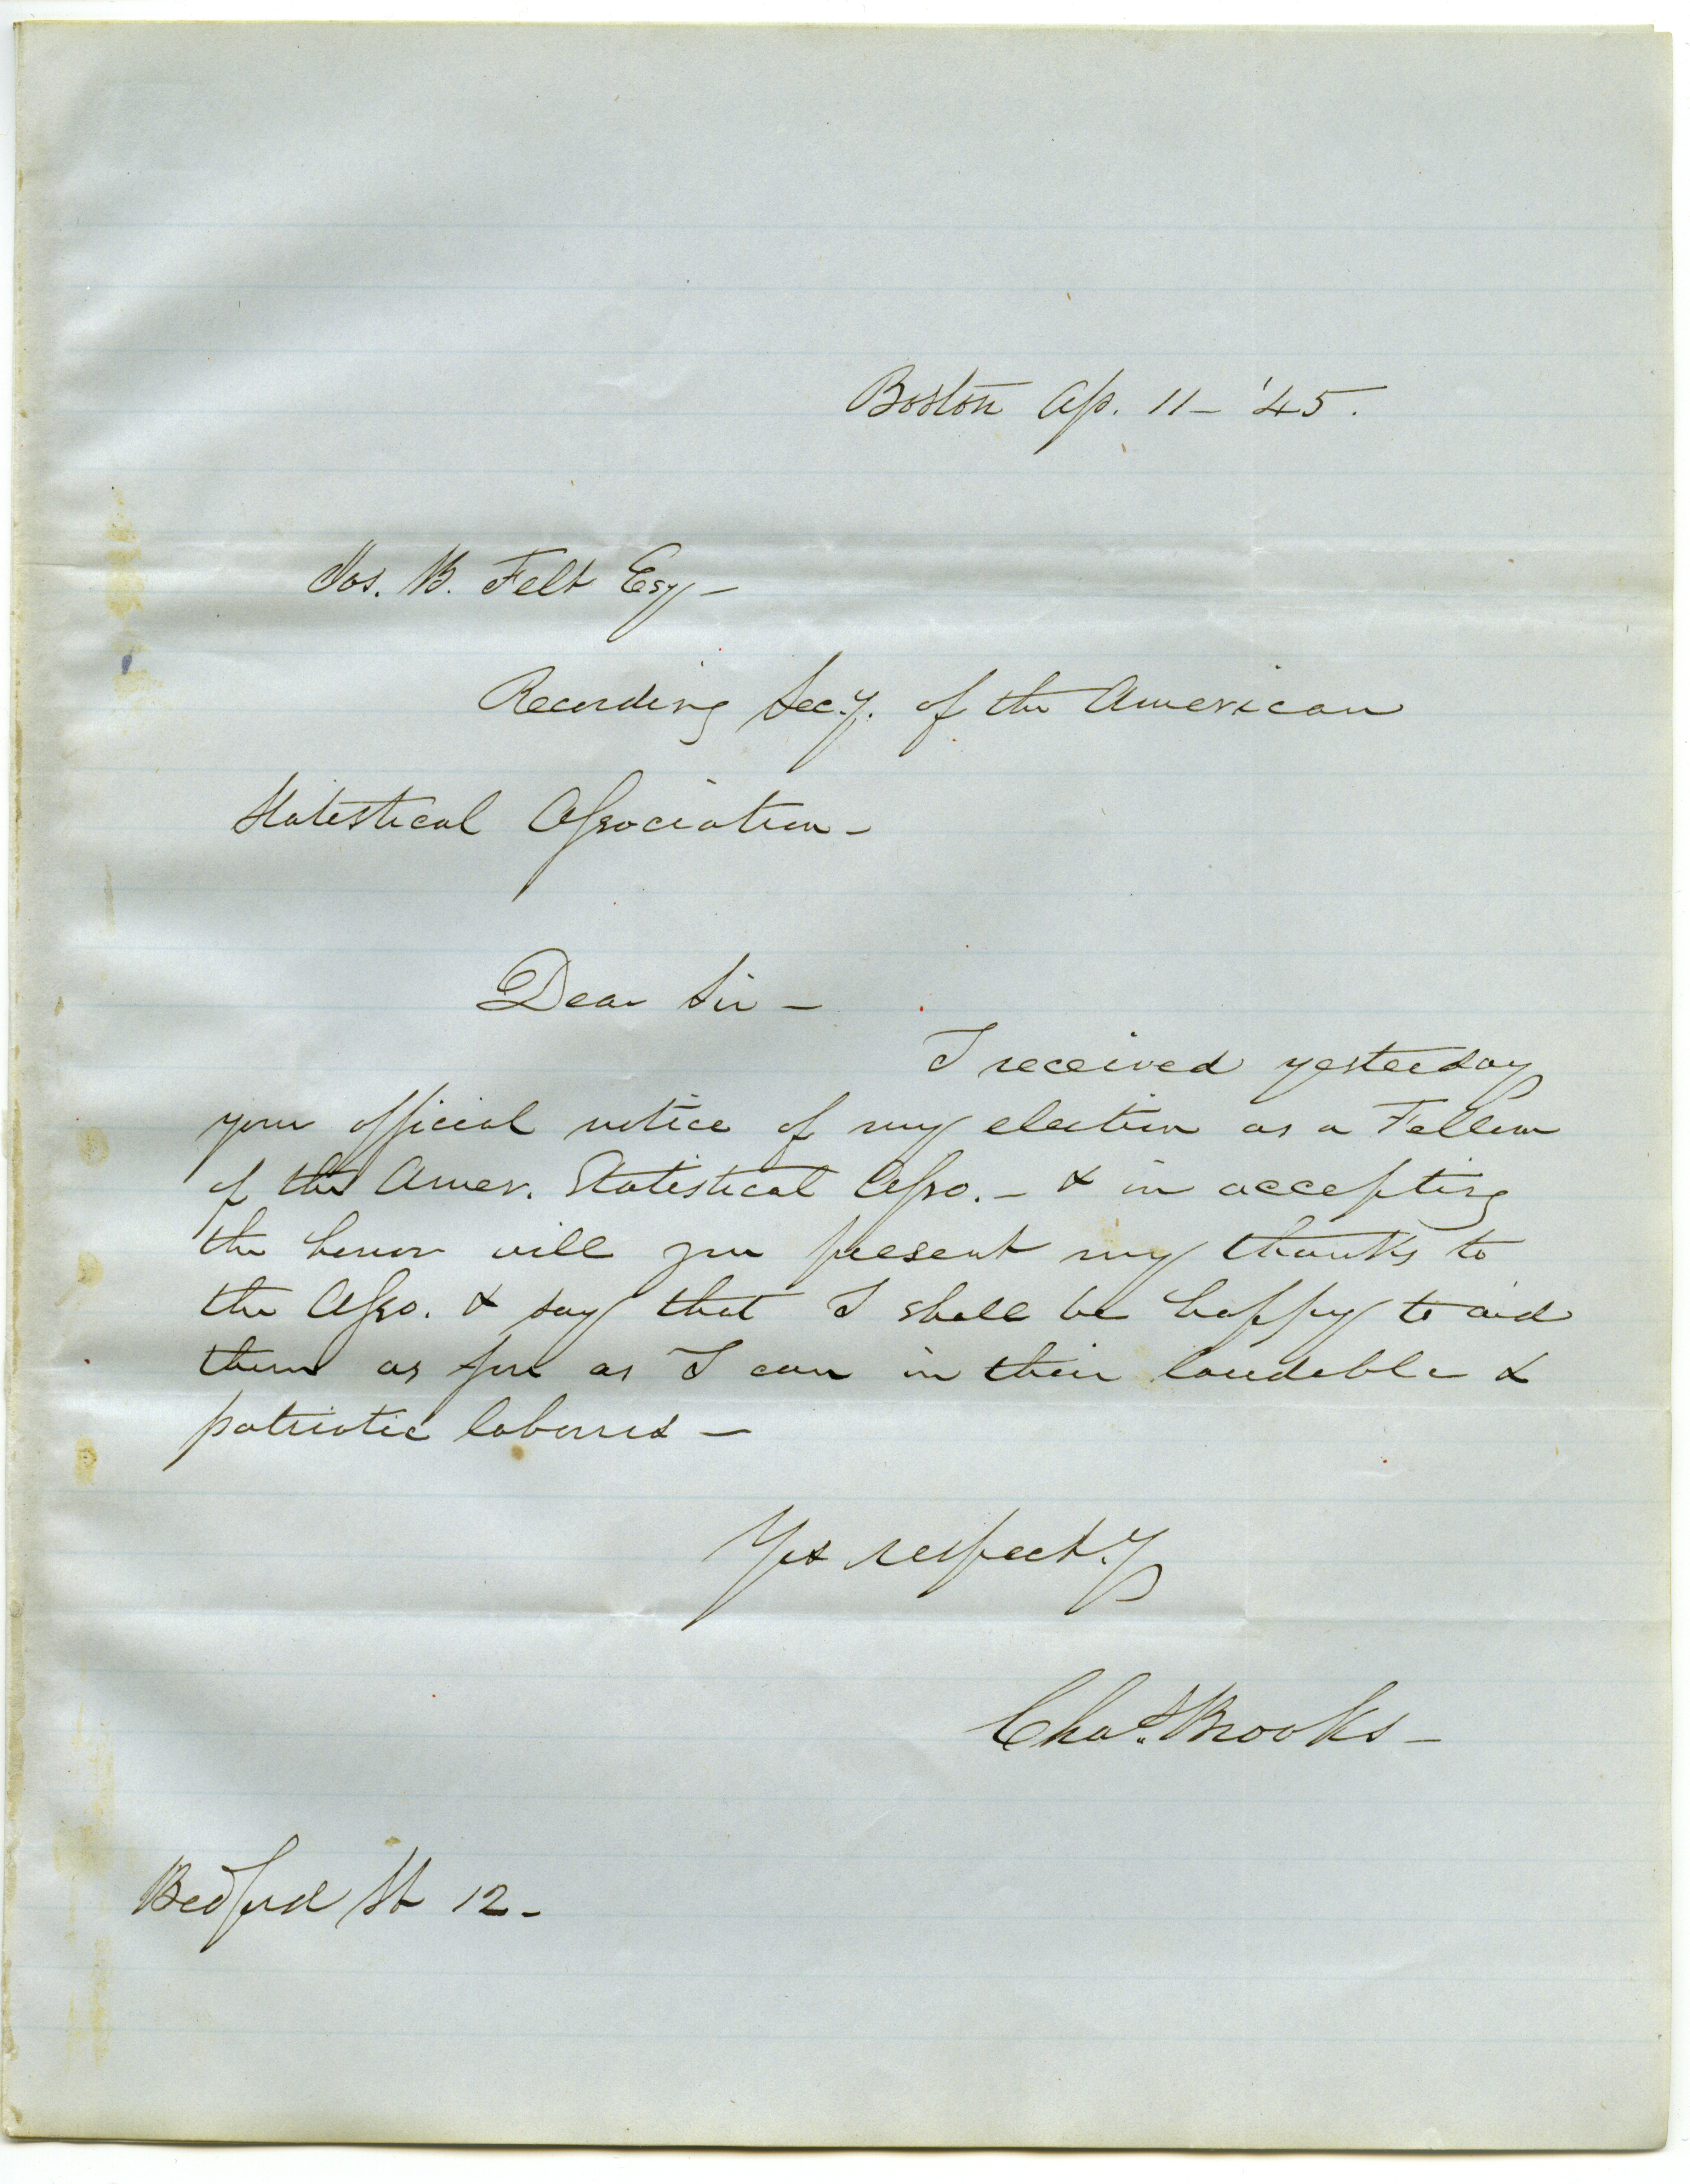 Boston Ap. 11 – '45.
Jos. B. Felt Esq –
Recording Sec.y. of the American
Statistical Association –
Dear Sir –
I received yesterday
your official notice of my election as a Fellow
of the Amer. Statistical Asso. – & in accepting
the honor will you present my thanks to
the Asso. & say that I shall be happy to aid
them as far as I can in their laudable &
patriotic labours –
Yrs respect.y
Chas. Brooks –
Bedford St 12 –